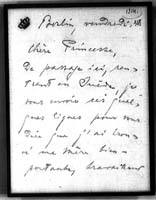 Berlin, vendredi
Chère Princesse,
De passage ici, ren-
trant en Suède, je
vous envoie ces quel-
ques lignes pour vous
dire que j'ai trou-
vé ma mère bien
portante,